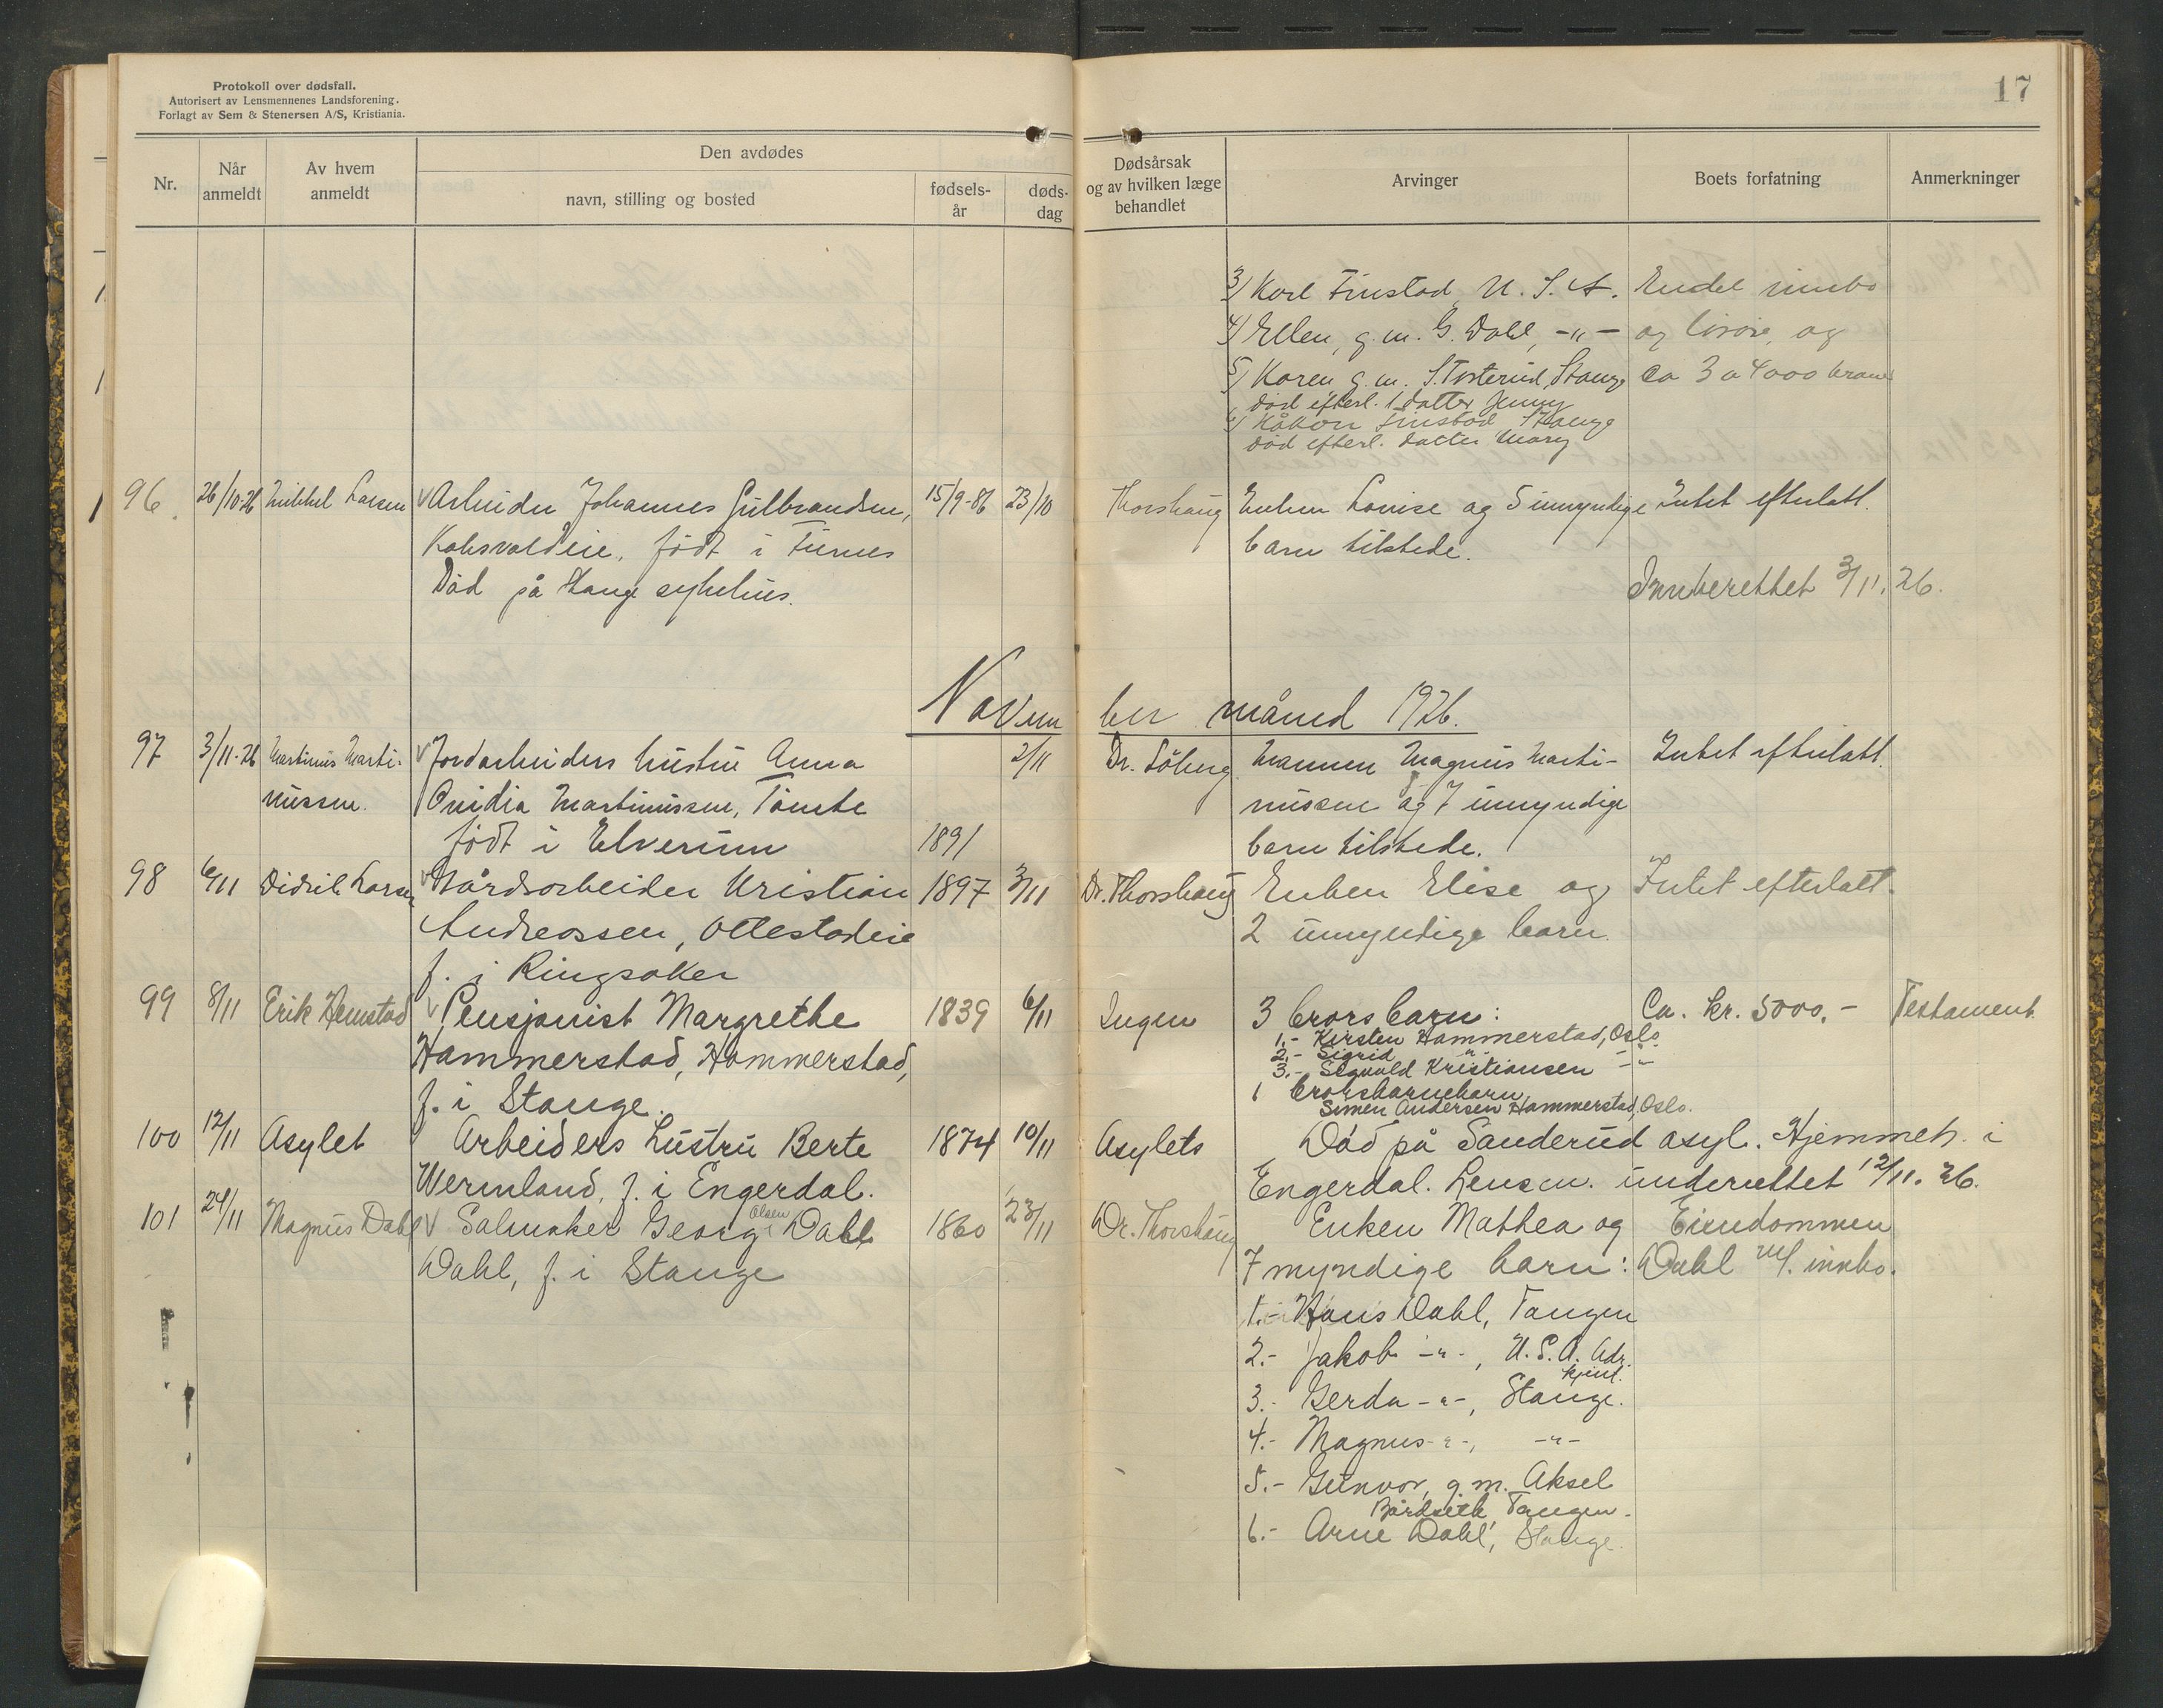 Protokoll over dødsfall.
Autorisert av Lensmennenes Landsforening.
Forlagt av Sem & Stenersen A/S, Kristiania.
17
Nr.
Når anmeldt
Av hvem anmeldt
Den avdødes
navn, stilling og bosted
fødsels-år
døds-dag
Dødsårsak og av hvilken læge behandlet
Arvinger
Boets forfatning
Anmerkninger
3) Karl Finstad, U.S.A. Endel innbo
4) Ellen, g.m. G. Dahl, -"- og løsøre, og
5) Karen g.m. S. Tosterud, Stange ca 3 a 4000 kroner
død efterl. 1 datter Jenny
6) Håkon Finstad Stange
død efterl. datter Mary
96. 26/10-26 Mikkel Larsen Arbeider Johannes Gulbrandsen, 15/9-86 23/10 Thorshaug Enken Lovise og 5 umyndige Intet efterlatt.
født i Furnes barn tilstede.
Død på Stange sykehus. Innberettet 3/11.26.
November måned 1926.
97 3/11-26 Martinus Marti- Jordarbeiders hustru Anna 2/11 Dr. Söberg Mannen Magnus Marti- Intet efterlatt.
nussen. Ovidia Martinussen, Tomte nussen og 7 umyndige
født i Elverum 1891 barn tilstede.
98 6/11 Didrik Larsen Gårdsarbeider Kristian 1897 3/11 Dr. Thorshaug Enken Elise og Intet efterlatt.
Andreassen, Ottestadeie 2 umyndige barn.
f. i Ringsaker
99 8/11 Erik Hemstad Pensjonist Margrethe 1839 6/11 Ingen 3 brors barn: Ca. kr. 5000.- Testament.
Hammerstad, Hammerstad, 1.- Kirsten Hammerstad, Oslo
2.- Sigrid -"- -"-
3.- Sigvald Kristiansen -"-
f. i Stange. 1 brorsbarnebarn
Simen Andersen Hammerstad, Oslo.
100 12/11 Asylet Arbeiders hustru Berte 1874 10/11 Asylets Død på Sanderud asyl. Hjemmeh. i
Wermland, f. i Engerdal. Engerdal. Lensm. underrettet 12/11. 26.
101 24/11 Magnus Dahl Salmaker Georg Olsen Dahl 1860 23/11 Dr. Thorshaug Enken Mathea og Eiendommen
Dahl, f. i Stange 7 myndige barn: Dahl m/. innbo.
1.- Hans Dahl, Tangen
2.- Jakob -"-, U.S.A. Adr. kjent.
3.- Gerda -"-, Stange.
4.- Magnus -"-, -"-
5.- Gunvor, g.m. Aksel
Bårdseth, Tangen.
6.- Arne Dahl, Stange.